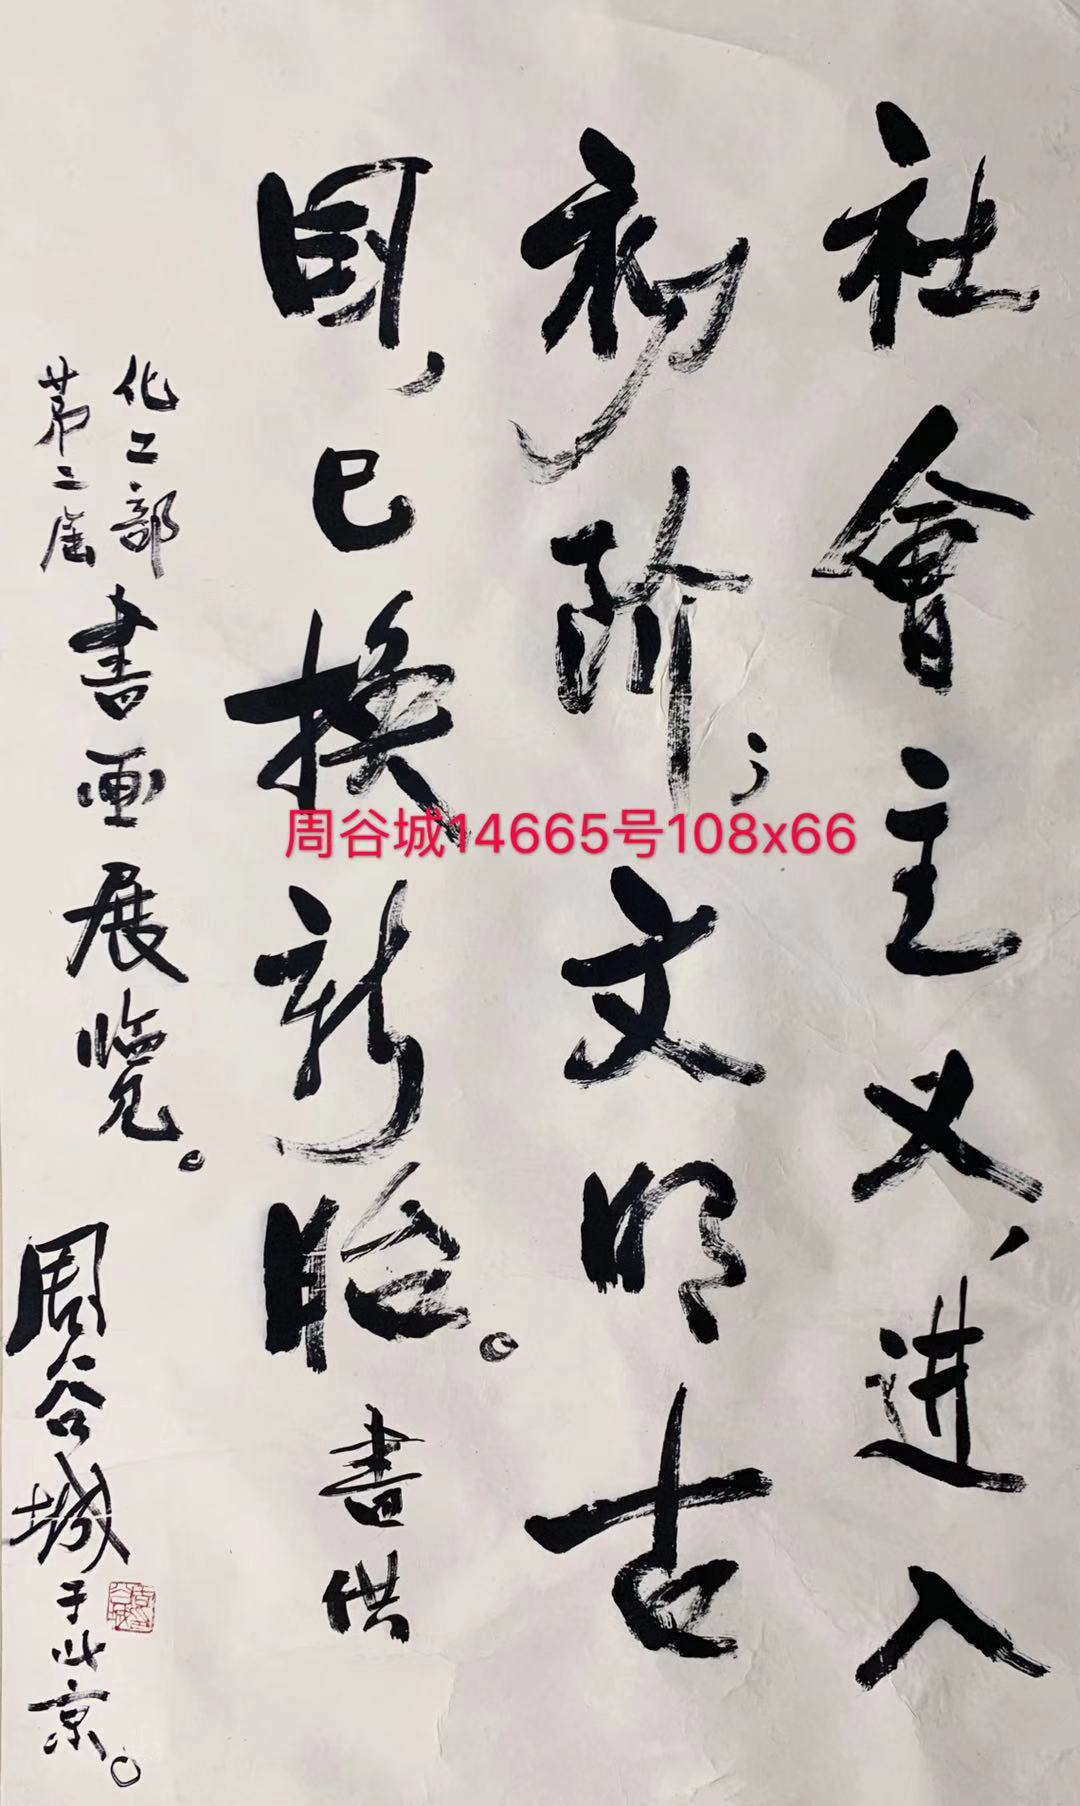 社會主义、进入
初阶；文明古
国、已换新眙。書供
化工部
第二届
書画展覽。
周谷城于北京。
周谷城14665号108x66